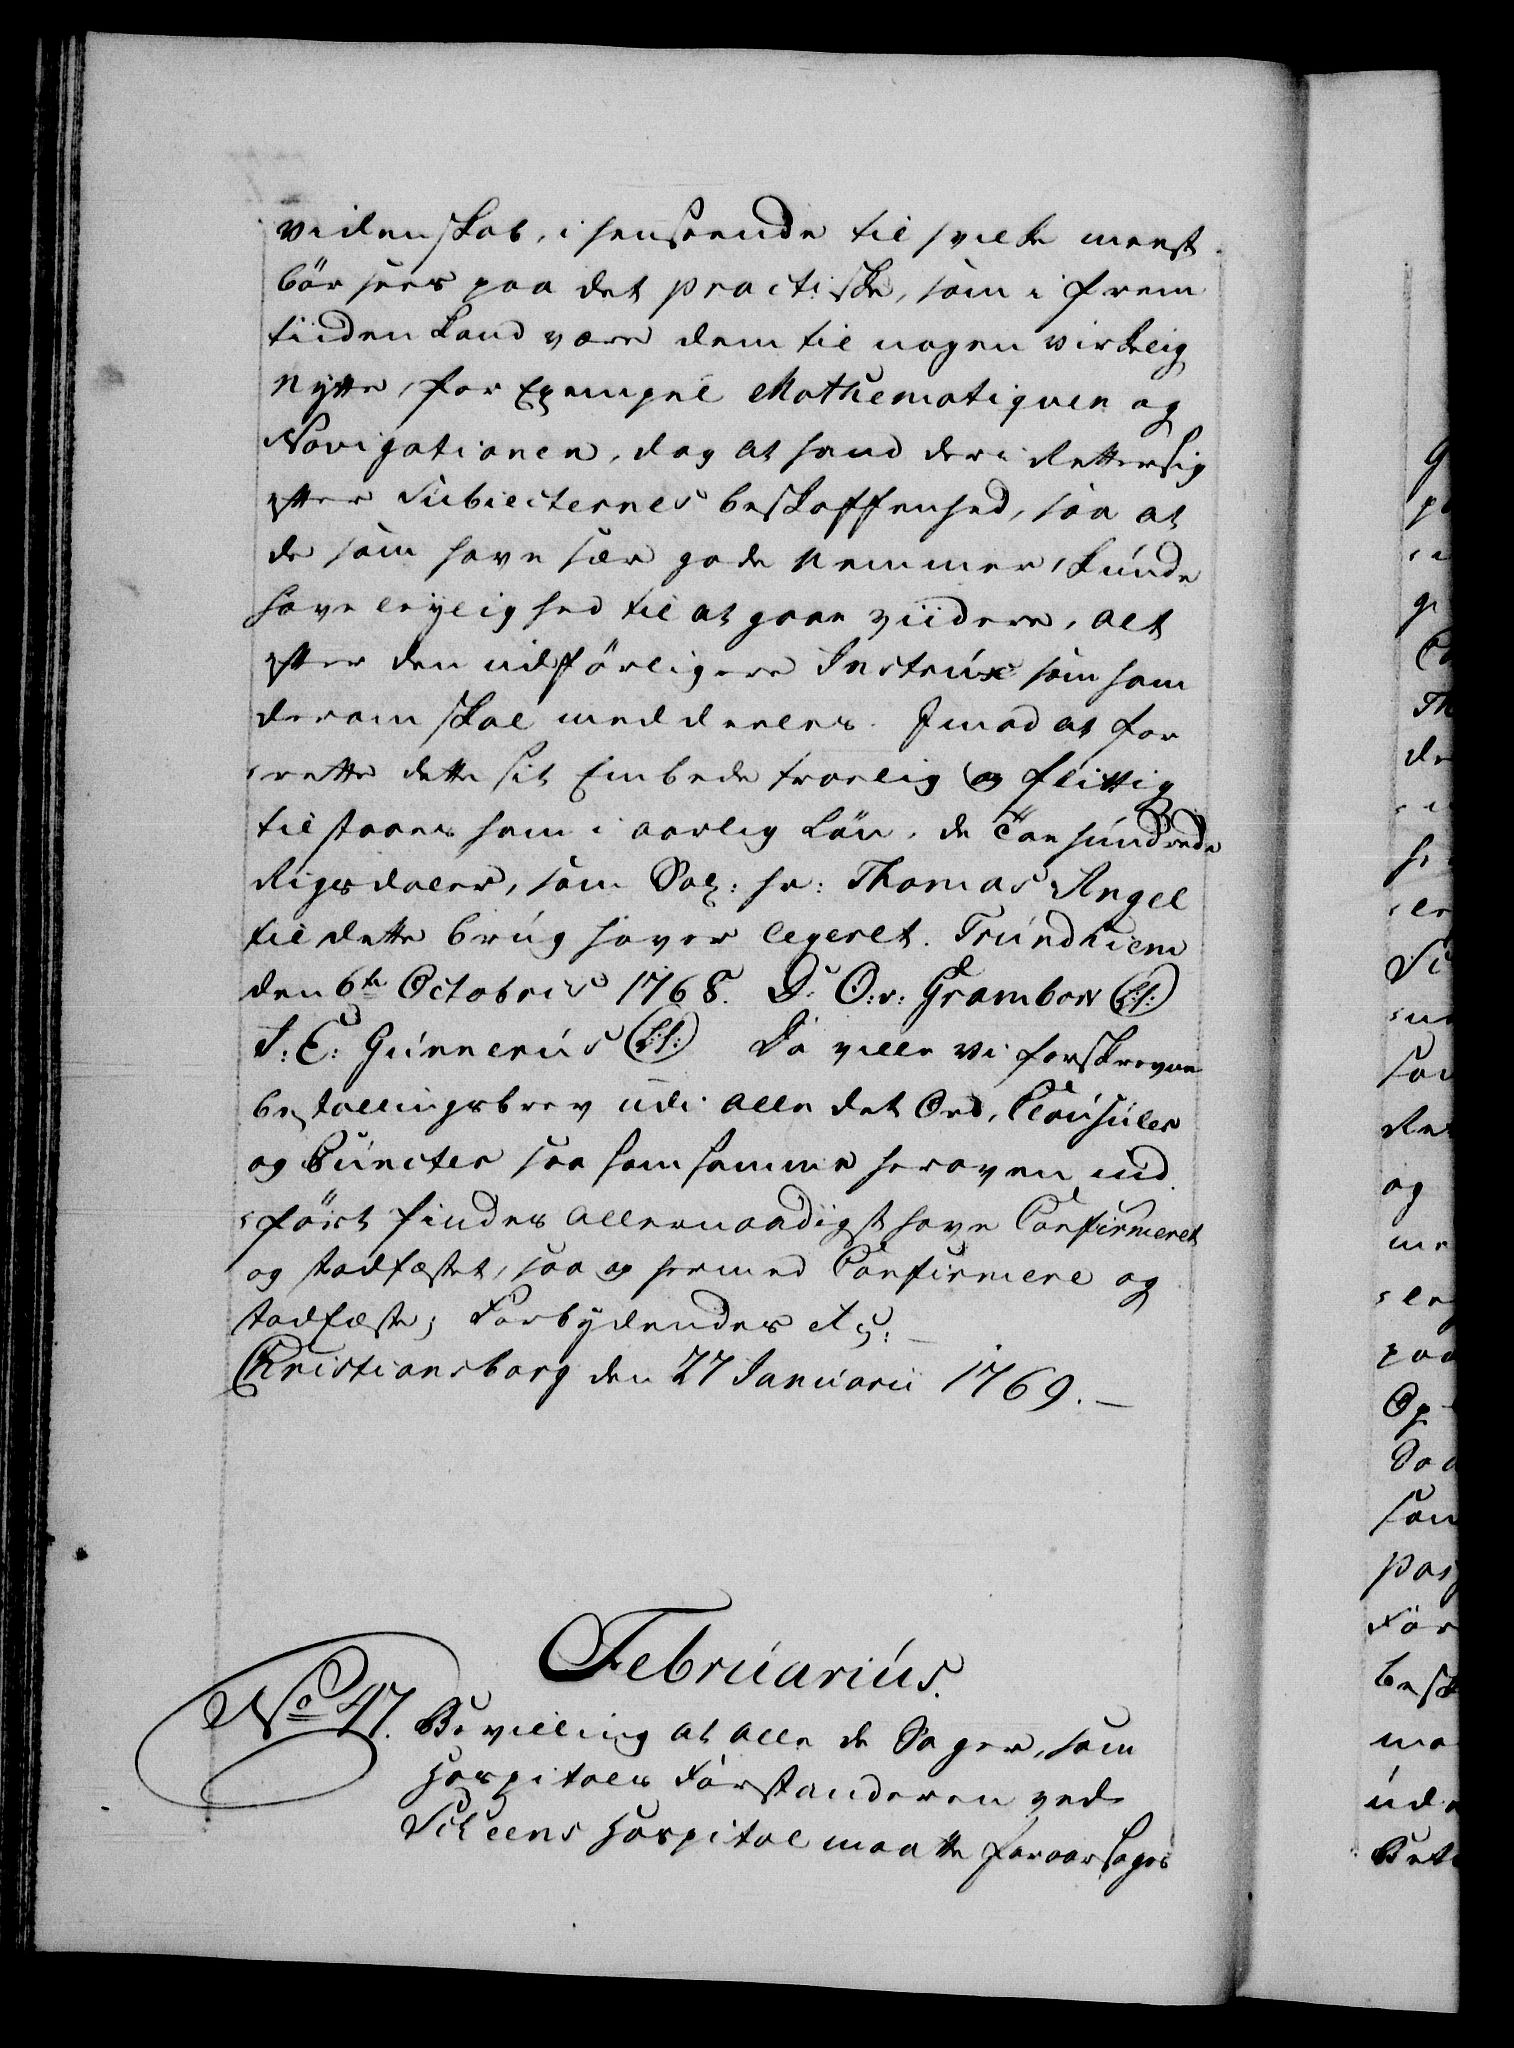 videnskab, i henseende til hvilke meest
bör sees paa det practiske, som i frem
tiiden kand være dem til nogen virkelig
Nytte, for Exempel Mathematiqven og
Navigationen, dog at hand deri retter sig
efter Subiecternes beskaffenhed, saa at
de som have sær gode Nemmer, kunde
have leylighed til at gaae viidere, alt
efter den udförligere Instrux som ham
derom skal meddeeles. Imod at for
rette dette sit Embede troelig og flittig
tilstaaes ham i aarlig Lön, de Toe hundrede
Rigsdaler, som Sal: hr: Thomas Angel
til dette brug haver legeret. Trundhiem
den 6te Octobris 1768. D: O: v: Grambow (L:S:)
I: E: Gunnerus (L:S:) Da ville vi forskrevne
bestallingsbrev udi alle det Ord, Clausuler
og Puncter saa som samme heroven ind
fört findes allernaadigst have Confirmeret
og stadfæstet, saa og hermed Confirmere og
stadfæste; Forbydendes etc:
Christiansborg den 27 Januarii 1769.
Februarius.
No 47. Bevilling at alle de Sager, som
Hospitals Forstanderen ved
Scheens Hospital maatte foraarsages